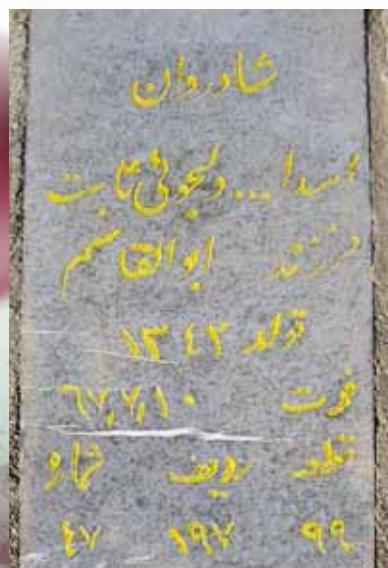 شادروان
اسدا... دلجوئی ثابت
فرزند ابوالقاسم
تولد ۱۳۴۲
فوت ۶۷٫۷٫۱۰
قطعه ردیف شماره
۹۹ ۱۹۷ ۴۷